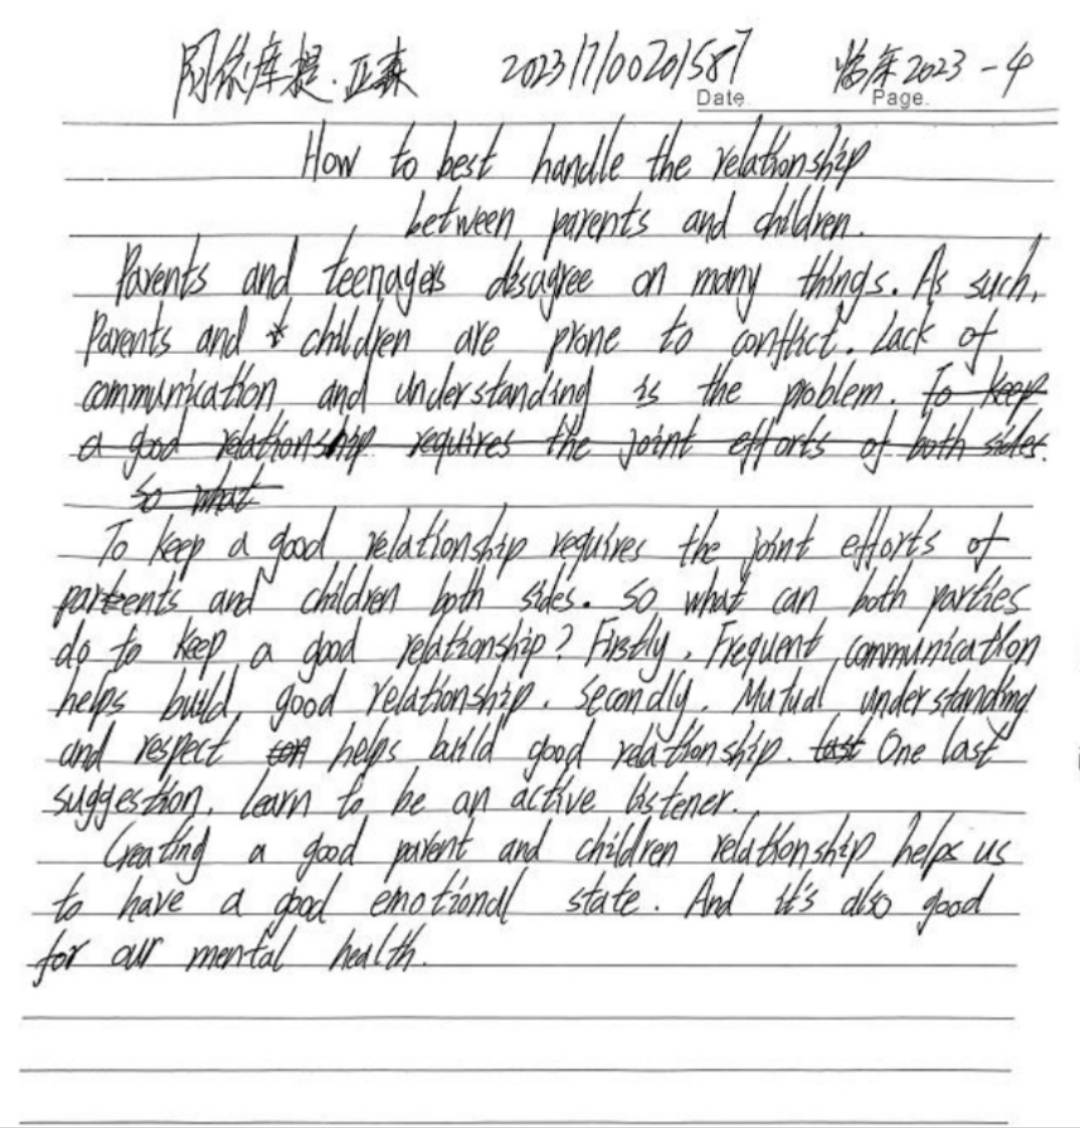 阿依库提·亚森 202317100201587 临床2023-4
Date. Page.
How to best handle the relationship
between parents and children.
Parents and teenagers disagree on many things. As such,
Parents and t children are prone to conflict. Lack of
communication and understanding is the problem. To keep
a good relationship requires the joint efforts of both sides.
So what
To keep a good relationship requires the joint efforts of
parents and children both sides. So what can both parties
do to keep a good relationship? Firstly, Frequent communication
helps build good relationship. Secondly. Mutual understanding
and respect con helps build good relationship. last One last
suggestion, learn to be an active listener.
Creating a good parent and children relationship helps us
to have a good emotional state. And it's also good
for our mental health.